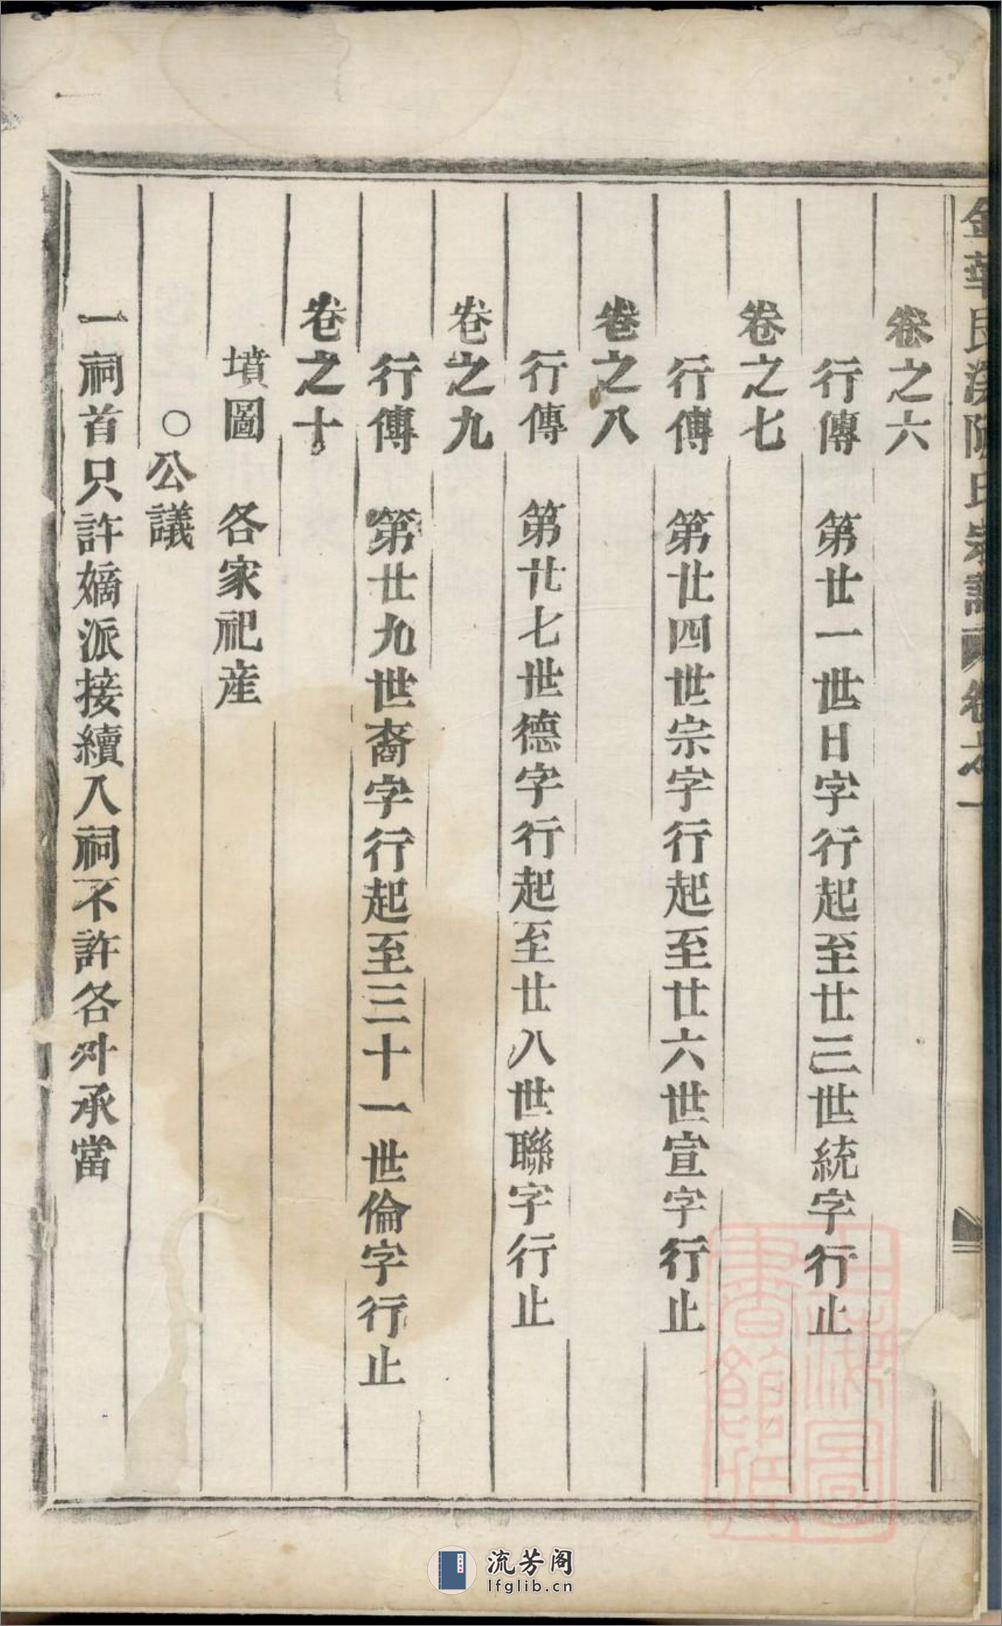 卷之六
行傳 第廿一世日字行起至廿三世統字行止
卷之七
行傳 第廿四世宗字行起至廿六世宣字行止
卷之八
行傳 第廿七世德字行起至廿八世聯字行止
卷之九
行傳 第廿九世裔字行起至三十一世倫字行止
卷之十
墳圖 各家祀産
○公議
一祠首只許嫡派接續入祠不許各外承當
流芳阁
lfglib.cn